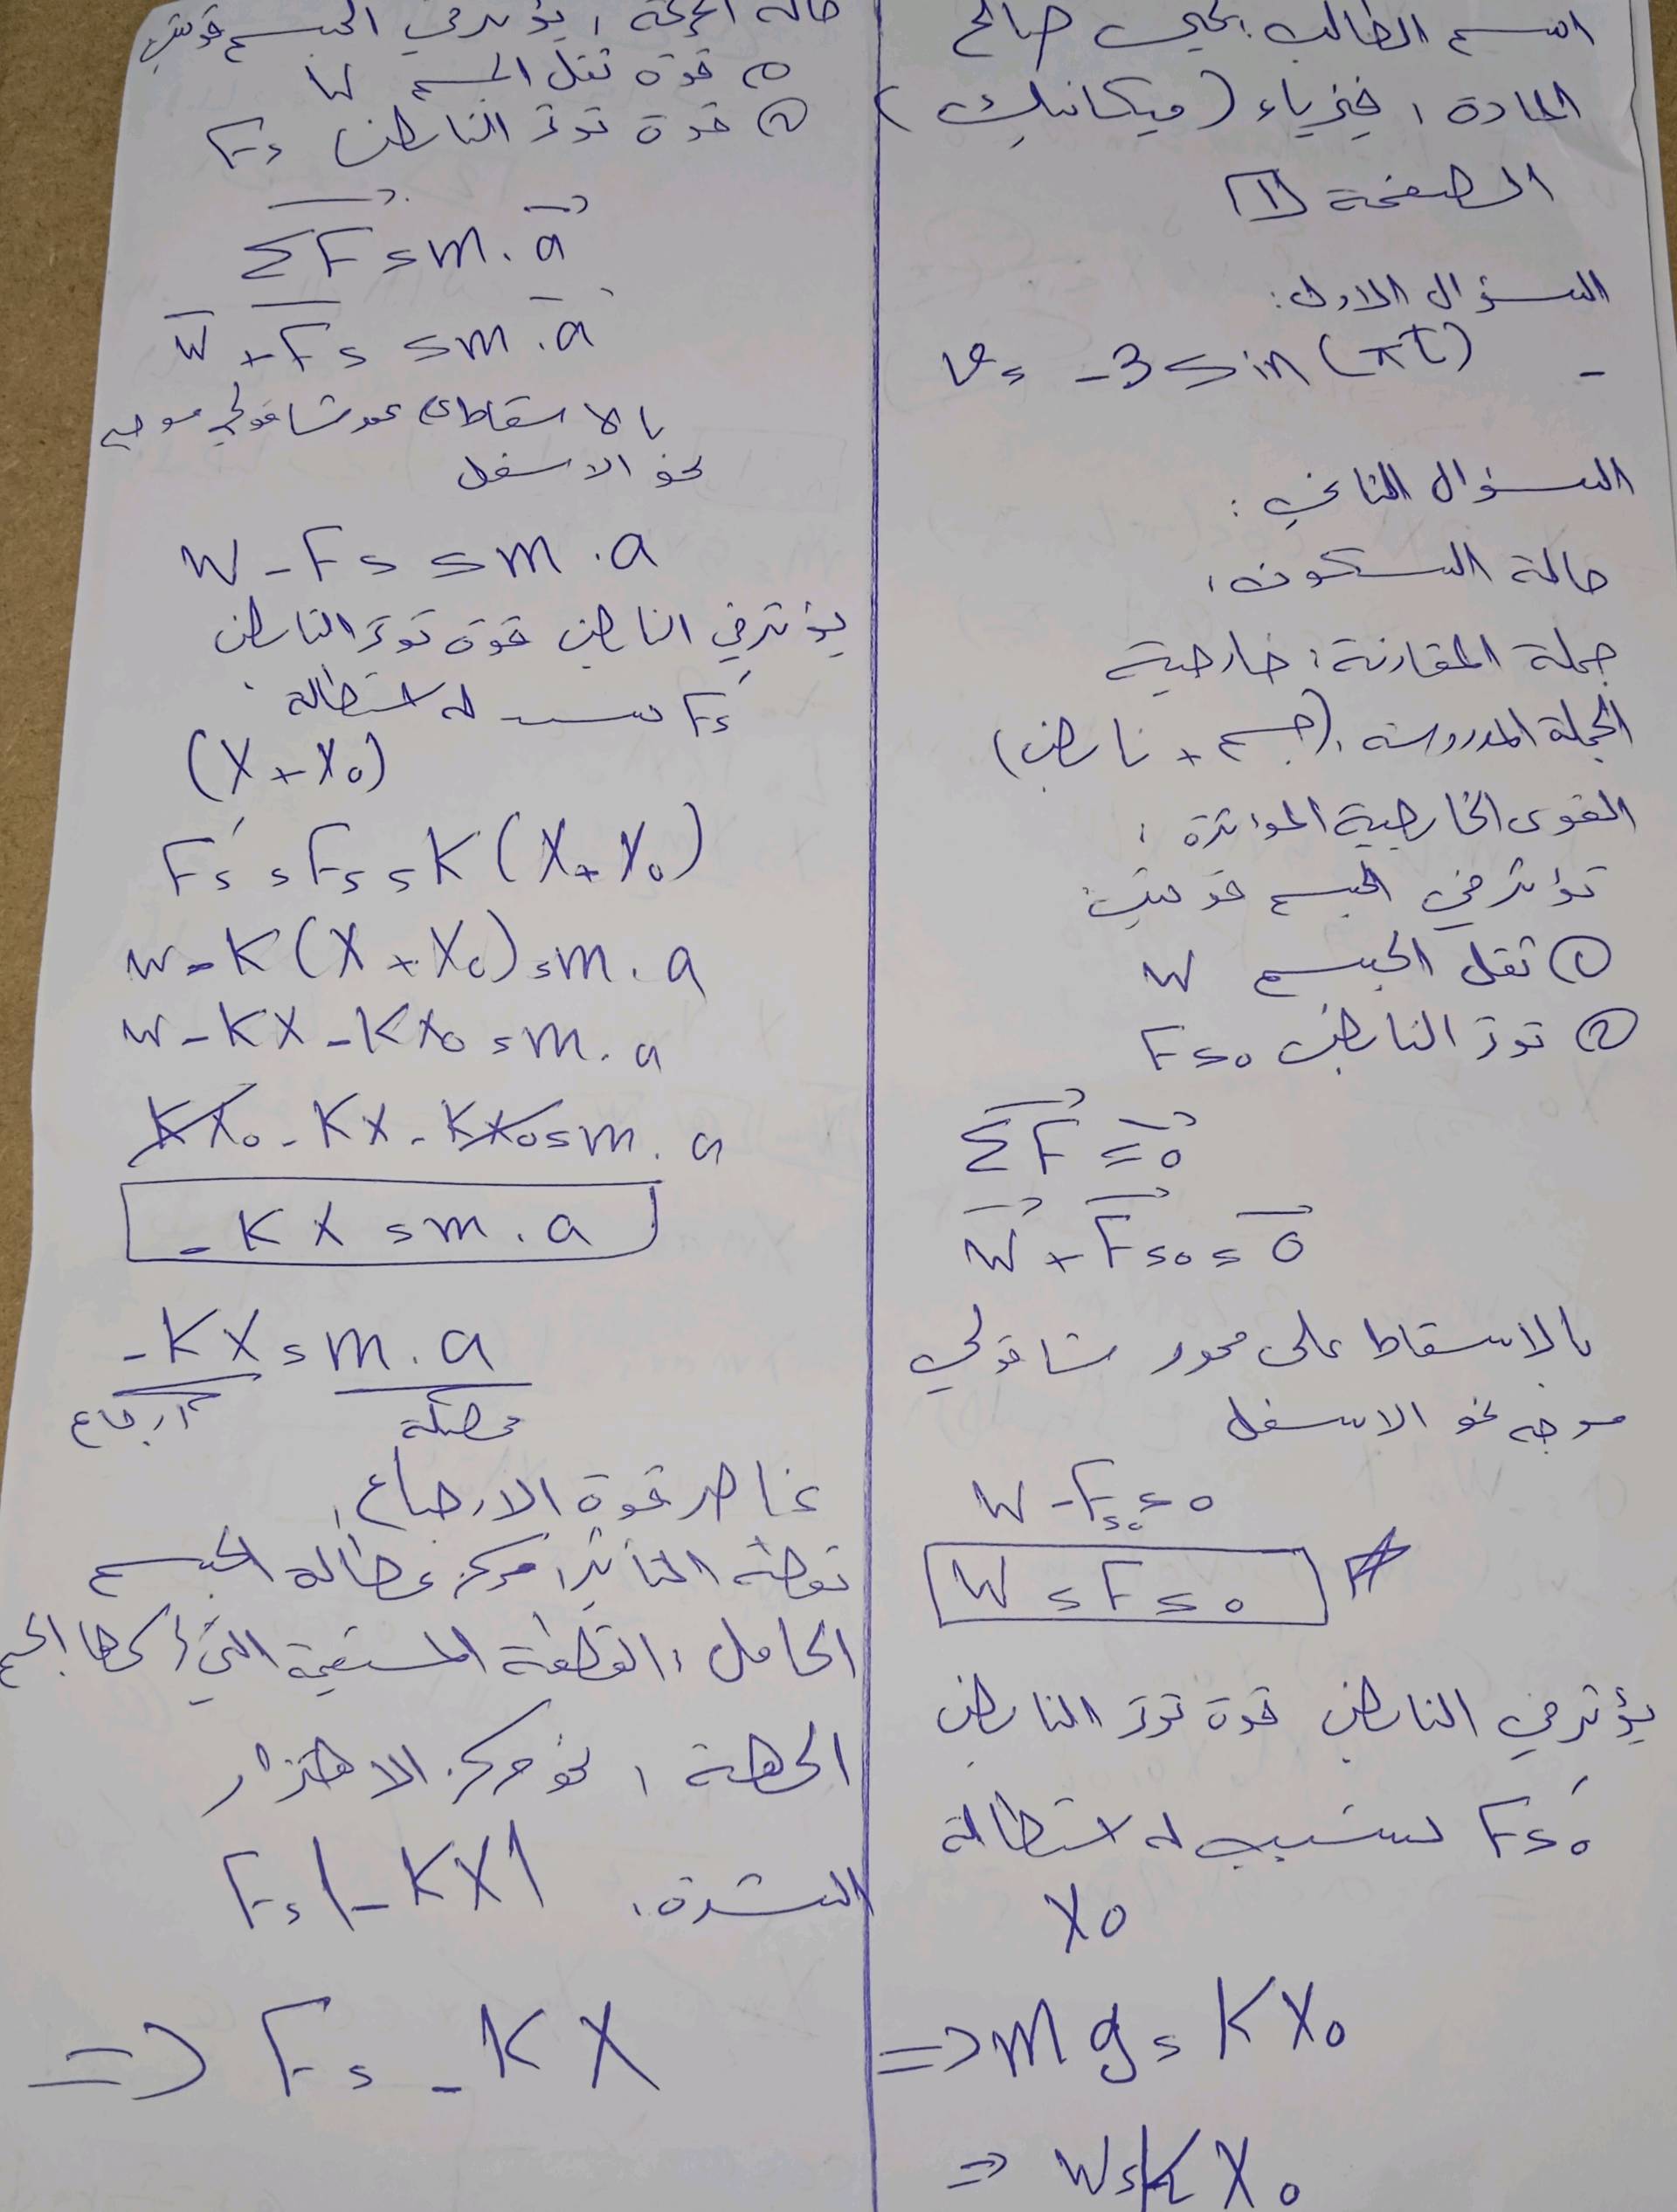 اسم الطالب: يحيى صالح
المادة: فيزياء (ميكانيك)
الصفحة 1
السؤال الاول:
- v = -3 sin(πt)
السؤال الثاني:
حالة السكون:
جملة المقارنة: خارجية
الجملة المدروسة: (جسم + نابض)
القوى الخارجية المؤثرة:
تؤثر في الجسم قوتين:
① ثقل الجسم W
② توتر النابض Fs0
ΣF = 0
W + Fs0 = 0
بالاسقاط على محور شاقولي
موجه نحو الاسفل
W - Fs0 = 0
W = Fs0
يؤثر في النابض قوة توتر النابض
F's0 تسبب له استطالة
X0
=> mg = KX0
=> W = KX0
حالة الحركة: يؤثر في الجسم قوتين
① قوة ثقل الجسم W
② قوة توتر النابض Fs
ΣF = m.a
W + Fs = m.a
بالاسقاط على محور شاقولي موجه
نحو الاسفل
W - Fs = m.a
يؤثر في النابض قوة توتر النابض
F's تسبب له استطالة
(X + X0)
F's = Fs = K(X + X0)
W - K(X + X0) = m.a
W - KX - KX0 = m.a
KX0 - KX - KX0 = m.a
-KX = m.a
-KX = m.a
ارجاع محصلة
عناصر قوة الارجاع:
نقطة التأثير: مركز عطالة الجسم
الحامل: القطعة المستقيمة التي الجسم
الجهة: نحو مركز الاهتزاز
الشدة: F = |-KX|
=> F = -KX